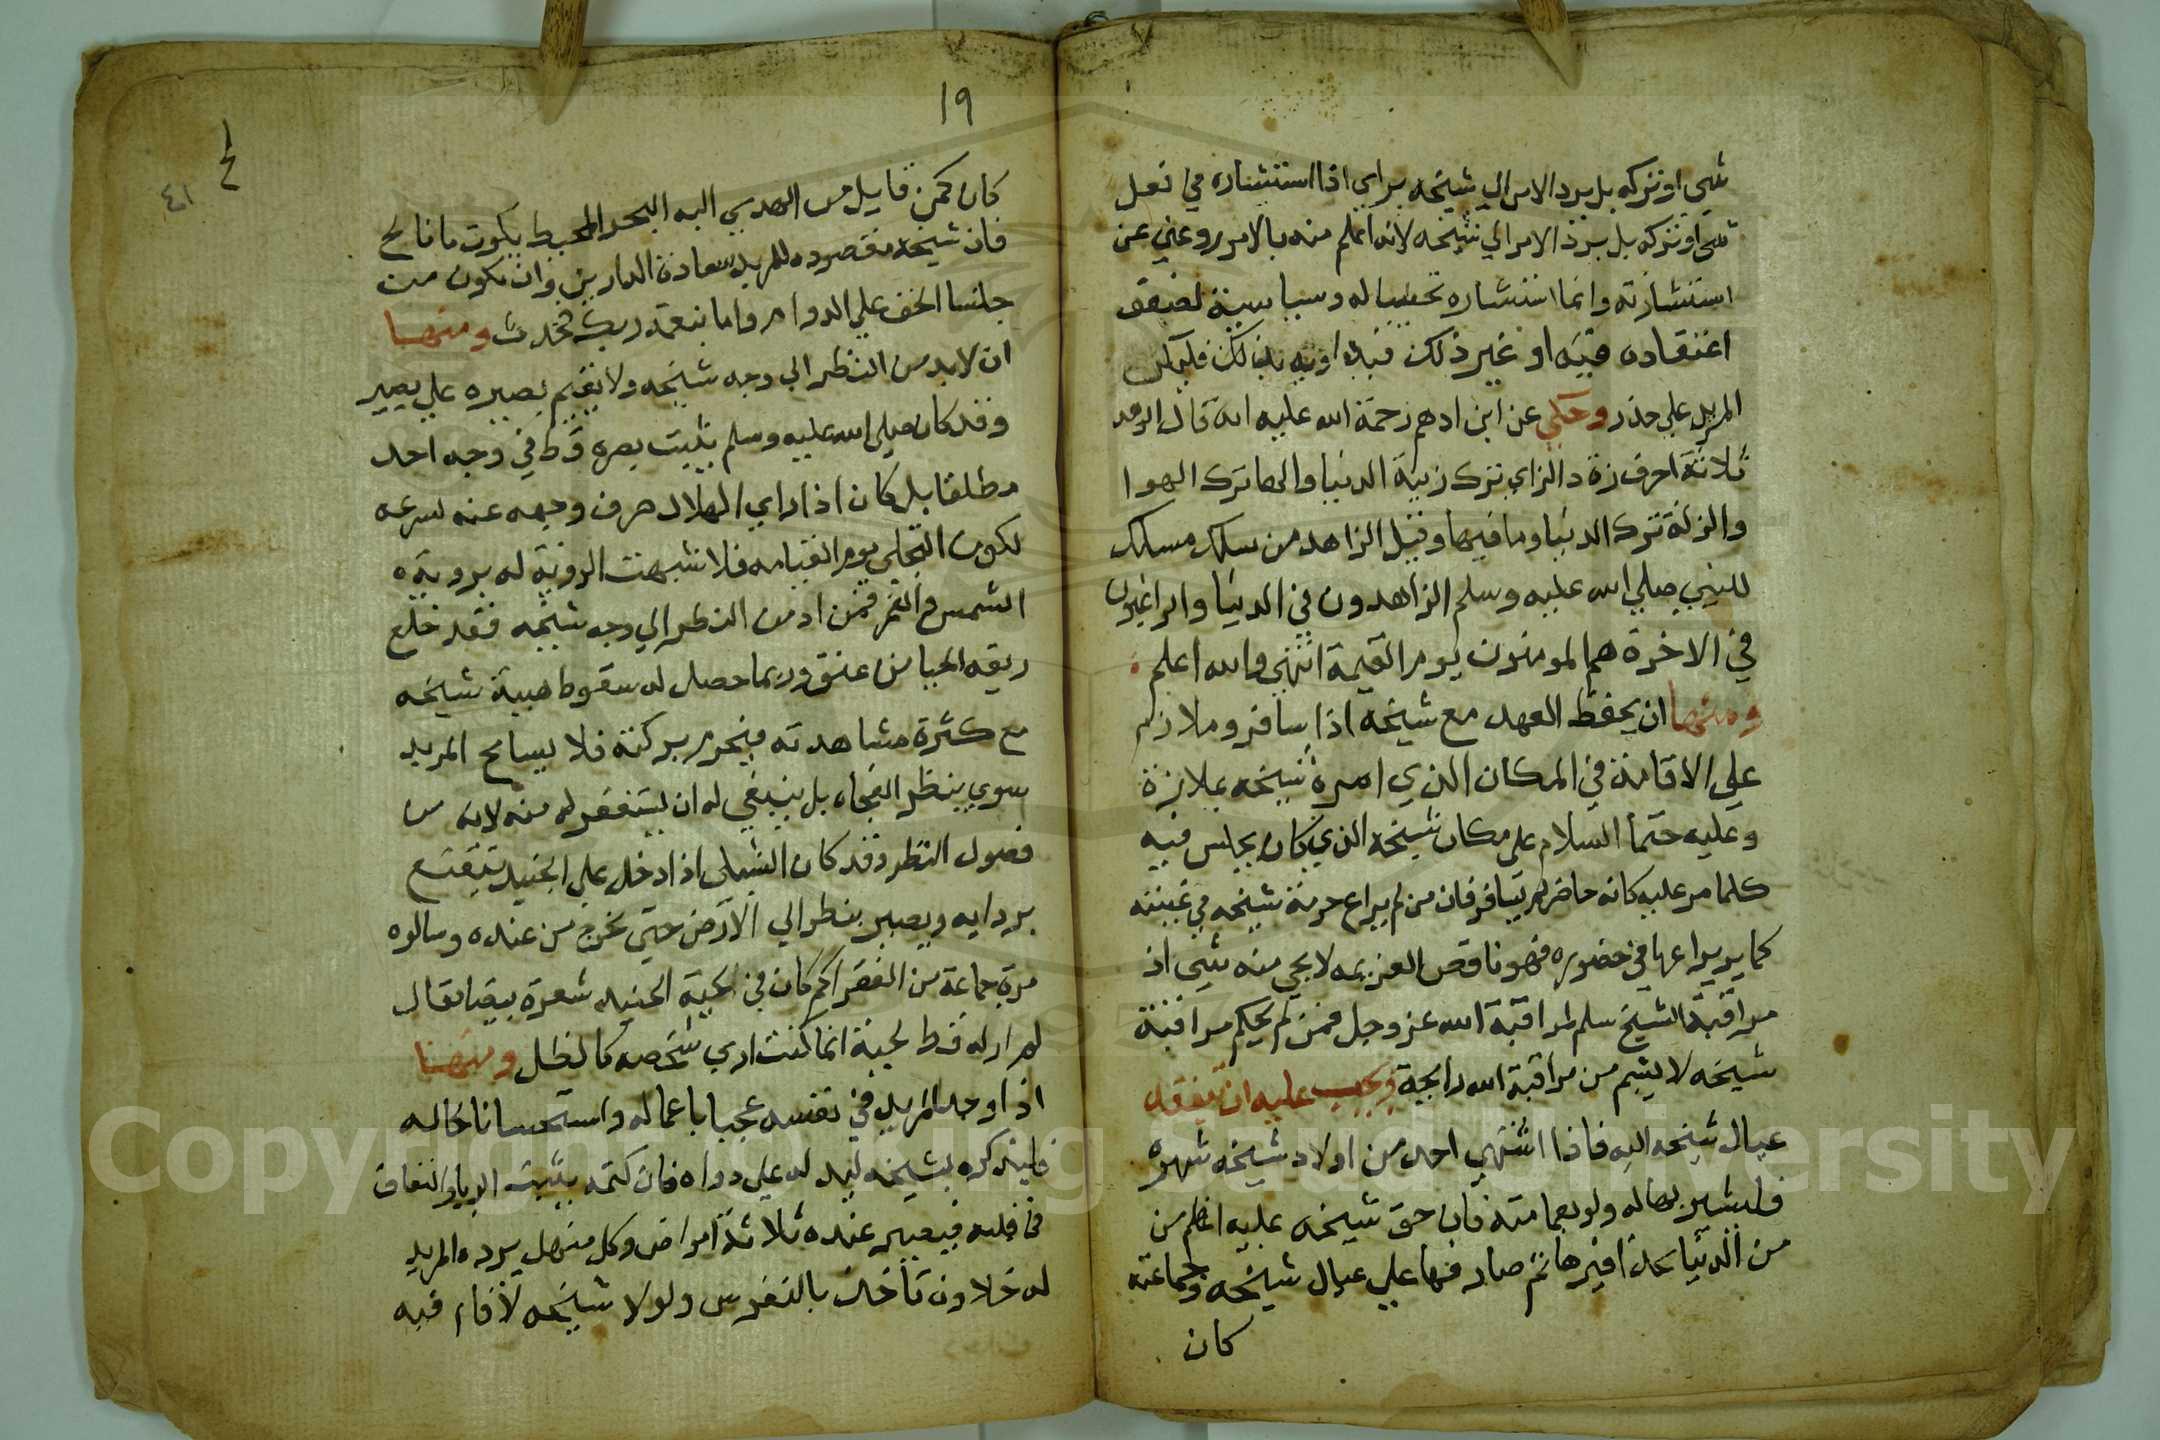 شي او تركه بل يرد الامر الي شيخه براي اذا استشاره في فعل
شي او تركه بل يرد الامر الي شيخه لانه اعلم منه بالامر وغني عن
استشارته وانما استشاره تحببا له وسياسة لضعف
اعتقاده فيه او غير ذلك فليكن
المريد علي حذر وحكي عن ابن ادهم رحمة الله عليه انه قال الزهد
ثلاثة احرف زه د الزاي ترك زينة الدنيا والها ترك الهوا
والدال ترك الدنيا وما فيها وقيل الزاهد من سلك مسلك
للنبي صلي الله عليه وسلم الزاهدون في الدنيا والراغبون
في الاخرة هم المومنون يوم القيمة انتهي والله اعلم
ومنها ان يحفظ العهد مع شيخه اذا سافر وملازم
علي الاقامة في المكان الذي امره شيخه بملازمة
وعليه حتما السلام علي مكان شيخه الذي كان يجلس فيه
كلما مر عليه كانه حاضر لم يسافر فان من لم يراع حرمة شيخه في غيبته
كما يراعيها في حضوره فهو ناقص العزيمه لا يجي منه شي اذ
مراقبة الشيخ سلم لمراقبة الله عز وجل فمن لم يحكم مراقبة
شيخه لا يشم من مراقبة الله رايحة ويجب عليه ان يتفقد
عيال شيخه اليه فاذا اشتهي احد من اولاد شيخه شهوه
فليشتريها له ولو بعمامته فان حق شيخه عليه اعظم من
من الدنيا بحذافيرها ثم صارفها علي عيال شيخه وجماعته
كان
١٩
٤١
كان كمن قابل من اهدي اليه البحر المحيط بكوت ما نالح
فان شيخه مقصوده للمريد سعادة الدارين وان يكون من
جلسا الحق علي الدوام واما بنعمة ربك فحدث ومنها
ان لا يدمن النظر الي وجه شيخه ولا يقيم بصره علي بصير
وقد كان صلي الله عليه وسلم يثبت بصره قط في وجه احد
مطلقا بل كان اذا راي الهلال صرف وجهه عنه لسرعه
لكون التجلي يوم القيامه فلا شبهت الروية له بروية
الشمس والقمر فمن ادمن النظر الي وجه شيخه فقد خلع
ربقه الحيا من عنقه وربما حصل له سقوط هيبة شيخه
مع كثرة مشاهدته فيحرم بركته فلا يسامح المريد
سوي بنظر الفجاه بل ينبغي له ان يستغفر له منه لانه من
فضول النظر وقد كان الشبلي اذا دخل علي الجنيد يتقنع
بردايه ويصير ينظر الي الارض حتي يخرج من عنده وسالوه
مرة جماعة من الفقرا كم كان في لحية الجنيد شعرة بيضا فقال
لم ار له قط لحية انما كنت اري شخصه كالظل ومنها
اذا وجد المريد في نفسه عجبا باعماله واستحسانا لحاله
فليذكره لشيخه ليدله علي دواه فان كتمه يثبت الريا والنفاق
في قلبه فيصير عنده ثلاثة امراض وكل منهل يرده المريد
له خلاون تاخذ بالنفوس ولولا شيخه لاقام فيه
Copyright © King Saud University